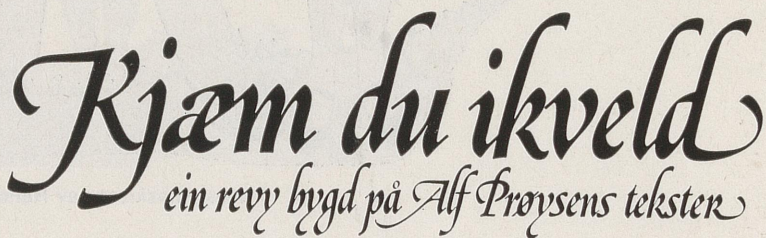 Kjæm du ikveld
ein revy bygd på Alf Prøysens tekster